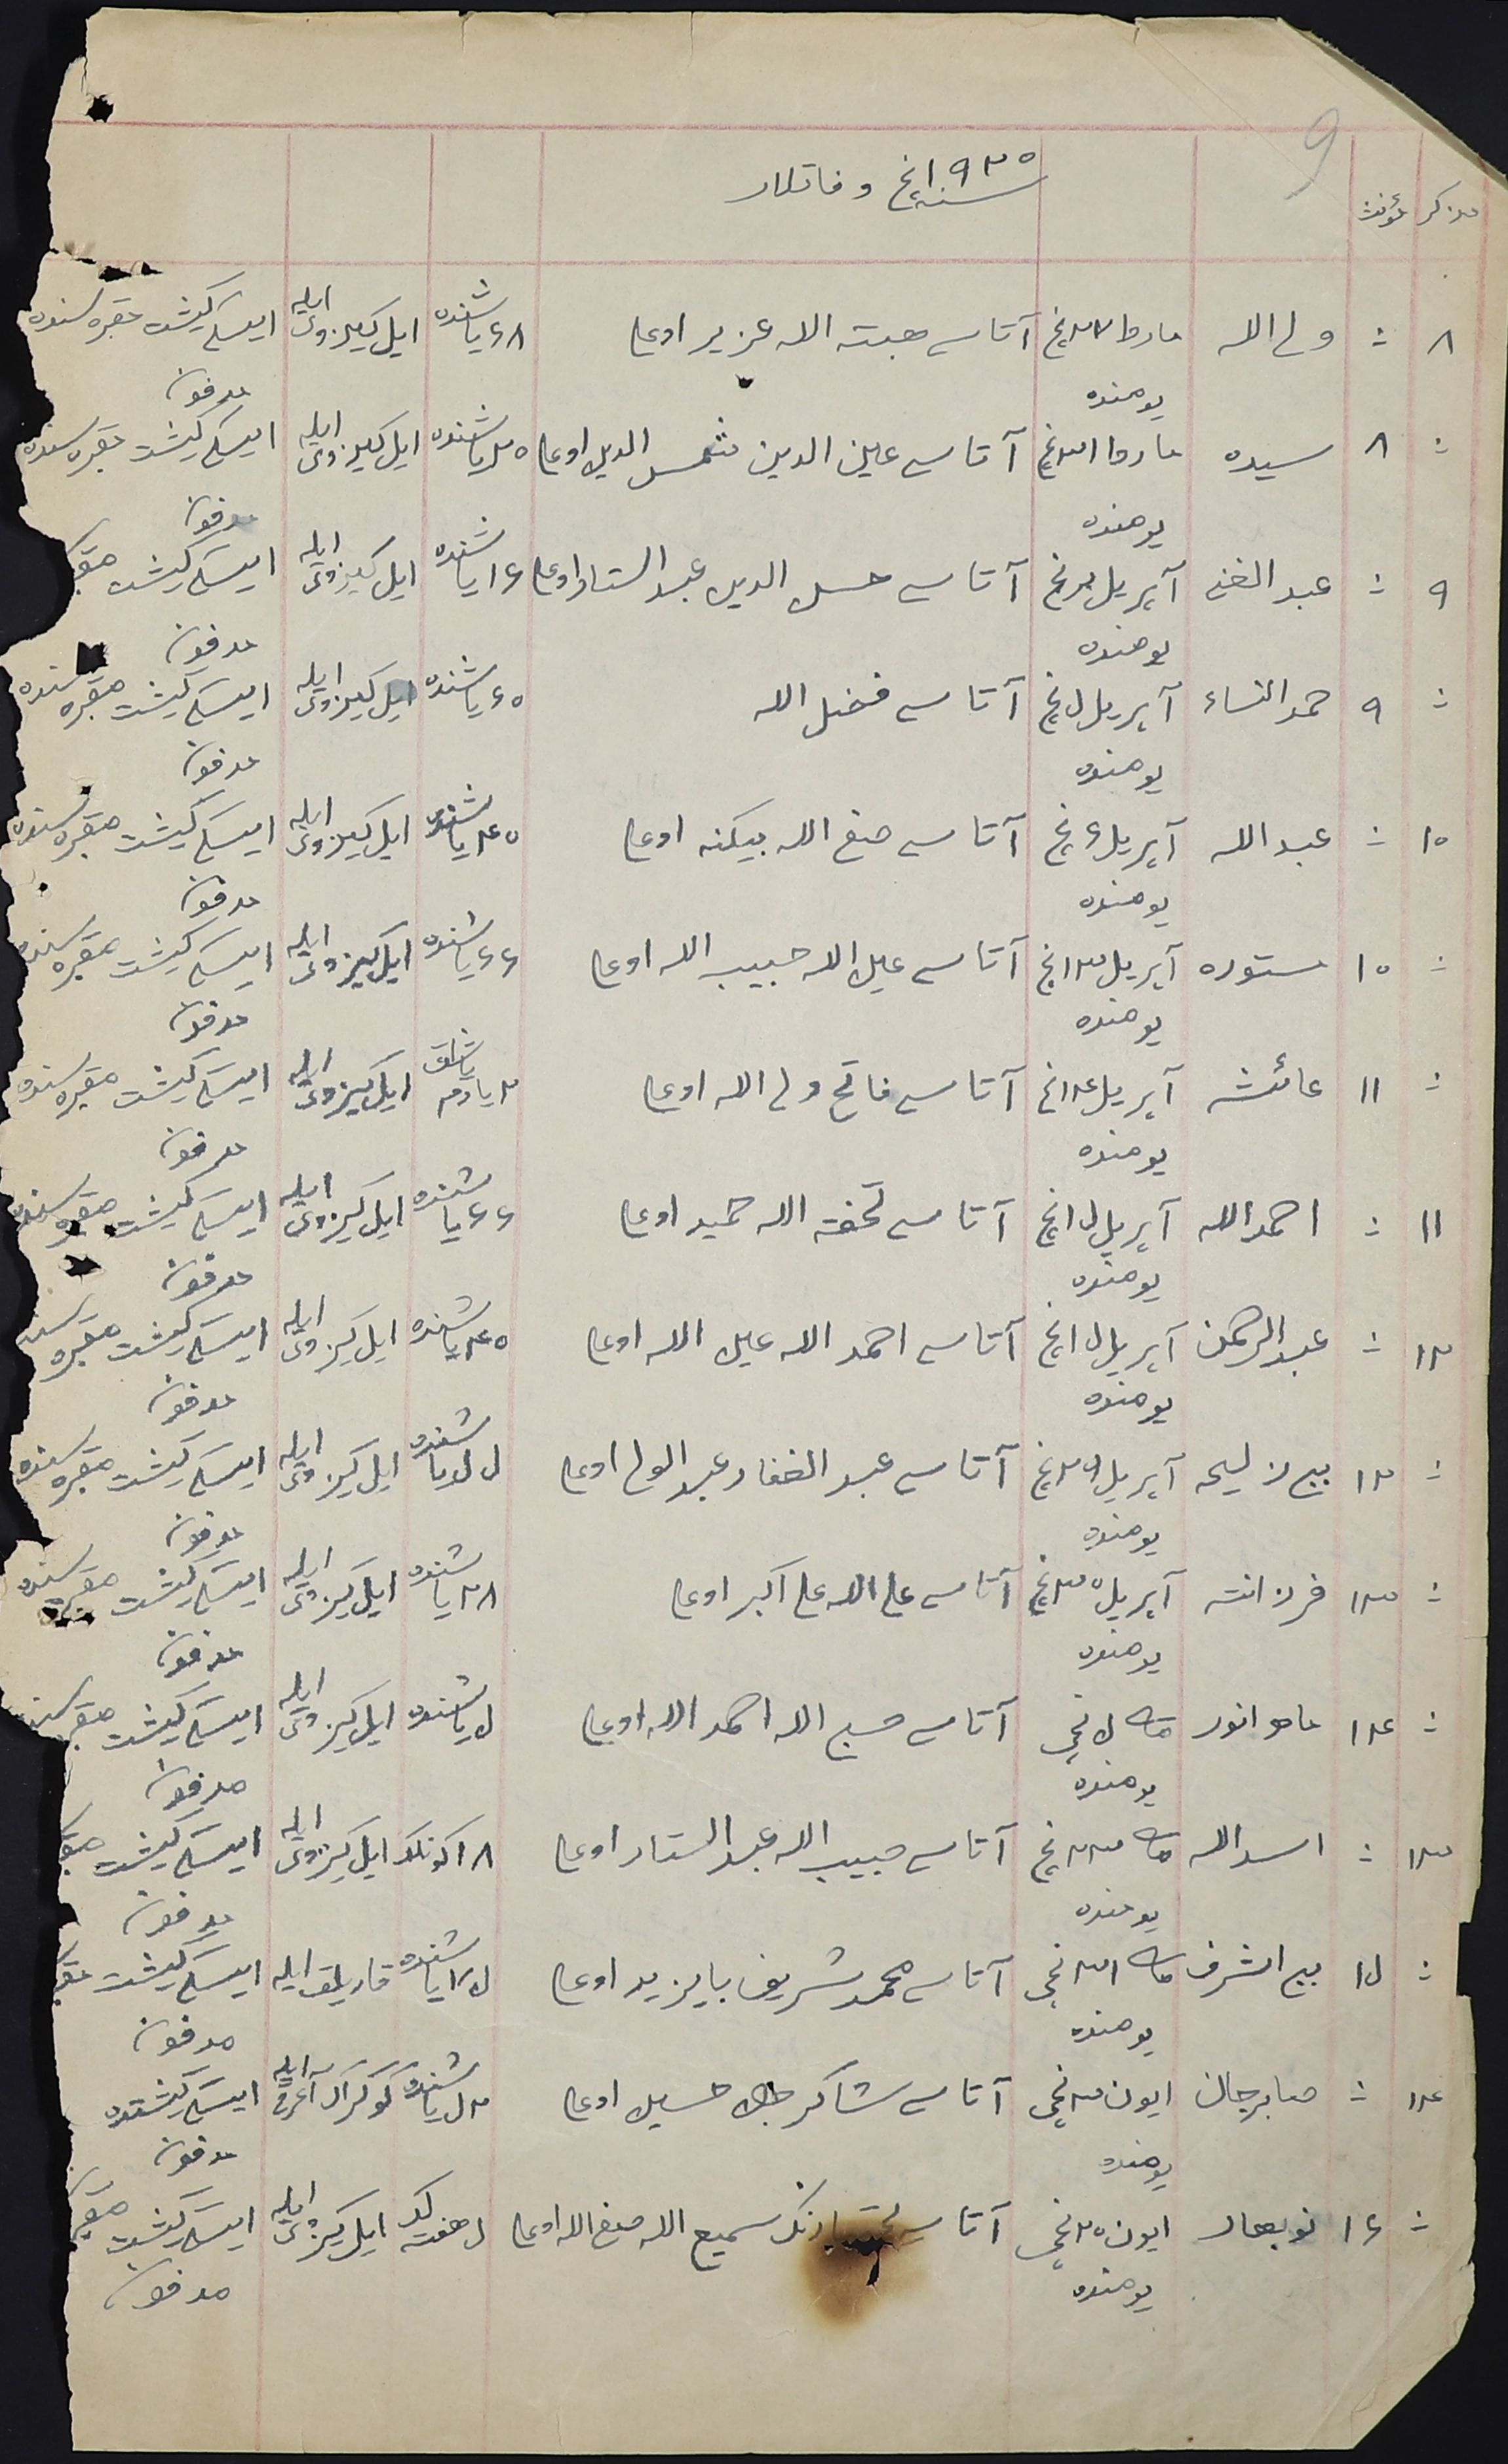 9
مذكر مؤنث ١٩٣٥ نچی سنه وفاتلار
٨ : ولی الله مارط ٢٧ نچی آتاسی هبة الله عزیز اوغلی ٦٨ یاشنده ایل کیزوی ایله ایسکی کیشت مقبره سنده
یومنده مدفون
: ٨ سیده مارط ٣١ نچی آتاسی عین الدین شمس الدین اوغلی یاشنده ایل کیزوی ایله ایسکی کیشت مقبره سنده
یومنده مدفون
٩ : عبد الغنی آپریل نچی آتاسی حسن الدین عبد الستار اوغلی ١٦ یاشنده ایل کیزوی ایله ایسکی کیشت
یومنده مدفون
: ٩ حمد النساء آپریل ٥ نچی آتاسی فضل الله ٦٥ یاشنده ایل کیزوی ایله ایسکی کیشت مقبره سنده
یومنده مدفون
١٠ : عبد الله آپریل ٦ نچی آتاسی صنع الله بیکنه اوغلی ٤٥ یاشنده ایل کیزوی ایله ایسکی کیشت مقبره سنده
یومنده مدفون
: ١٠ مستوره آپریل ١٣ نچی آتاسی عین الله حبیب الله اوغلی ٦٦ یاشنده ایل کیزوی ایله ایسکی کیشت مقبره سنده
یومنده مدفون
: ١١ عائشه آپریل ١٤ نچی آتاسی فاتح ولی الله اوغلی ٢ یارم یاشلق ایل کیزوی ایله ایسکی کیشت مقبره سنده
یومنده مدفون
١١ : احمد الله آپریل ١٥ نچی آتاسی تحفة الله حمید اوغلی ٦٦ یاشنده ایل کیزوی ایله ایسکی کیشت مقبره سنده
یومنده مدفون
١٢ : عبد الرحمن آپریل ١٥ نچی آتاسی احمد الله عین الله اوغلی ٤٥ یاشنده ایل کیزوی ایله ایسکی کیشت مقبره
یومنده مدفون
: ١٢ بیبی زلیحه آپریل ٢٩ نچی آتاسی عبد الغفار عبد الولی اوغلی ٥٥ یاشنده ایل کیزوی ایله ایسکی کیشت مقبره سنده
یومنده مدفون
: ١٣ فرزانه آپریل ٣٠ نچی آتاسی علی الله علی اکبر اوغلی ٢٨ یاشنده ایل کیزوی ایله ایسکی کیشت مقبره سنده
یومنده مدفون
: ١٤ ماه انور مای ٥ نچی آتاسی مسیح الله احمد الله اوغلی ٥ یاشنده ایل کیزوی ایله ایسکی کیشت
یومنده مدفون
١٣ : اسد الله مای ٢٣ نچی آتاسی حبیب الله عبد الستار اوغلی ١٨ کونلک ایل کیزوی ایله ایسکی کیشت
یومنده مدفون
: ١٥ بیبی اشرف مای ٣١ نچی آتاسی محمد شریف بایزید اوغلی ٧٥ یاشنده قارتلق ایله ایسکی کیشت
یومنده مدفون
١٤ : صابرجان ایون ٣ نچی آتاسی شاکرجان حسین اوغلی ٥٢ یاشنده کوکراک آغرقی ایله ایسکی کیشتده
یومنده مدفون
: ١٦ نوبهار ایون ٢٥ نچی آتاسی سمیع الله صنع الله اوغلی ٥ هفته لک ایل کیزوی ایله ایسکی کیشت
یومنده مدفون